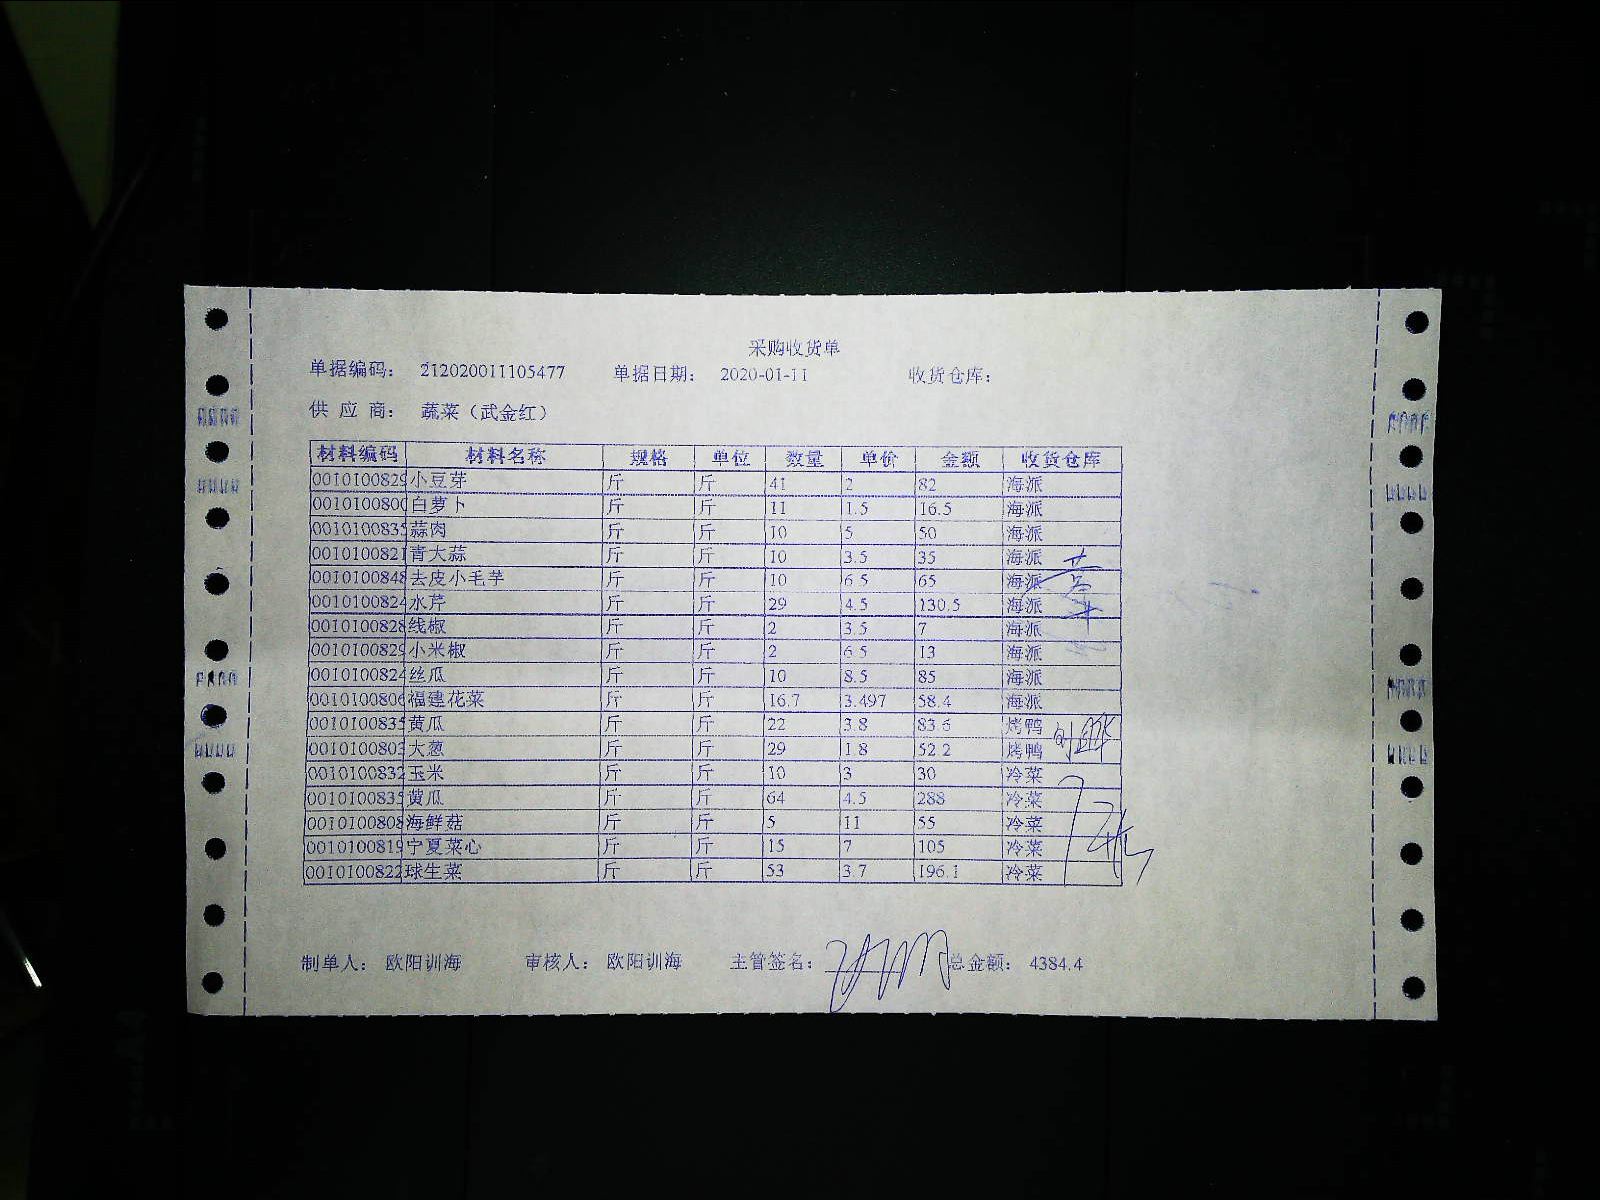 采购收货单
单据编码： 212020011105477 单据日期： 2020-01-11 收货仓库：
供 应 商： 蔬菜（武金红）
材料编码 材料名称 规格 单位 数量 单价 金额 收货仓库
0010100829 小豆芽 斤 斤 41 2 82 海派
0010100800 白萝卜 斤 斤 11 1.5 16.5 海派
0010100835 蒜肉 斤 斤 10 5 50 海派
0010100821 青大蒜 斤 斤 10 3.5 35 海派
0010100848 去皮小毛芋 斤 斤 10 6.5 65 海派
0010100824 水芹 斤 斤 29 4.5 130.5 海派
0010100828 线椒 斤 斤 2 3.5 7 海派
0010100829 小米椒 斤 斤 2 6.5 13 海派
0010100824 丝瓜 斤 斤 10 8.5 85 海派
0010100806 福建花菜 斤 斤 16.7 3.497 58.4 海派
0010100835 黄瓜 斤 斤 22 3.8 83.6 烤鸭
0010100803 大葱 斤 斤 29 1.8 52.2 烤鸭
0010100832 玉米 斤 斤 10 3 30 冷菜
0010100835 黄瓜 斤 斤 64 4.5 288 冷菜
0010100808 海鲜菇 斤 斤 5 11 55 冷菜
0010100819 宁夏菜心 斤 斤 15 7 105 冷菜
0010100822 球生菜 斤 斤 53 3.7 196.1 冷菜
制单人： 欧阳训海 审核人： 欧阳训海 主管签名： 总金额： 4384.4